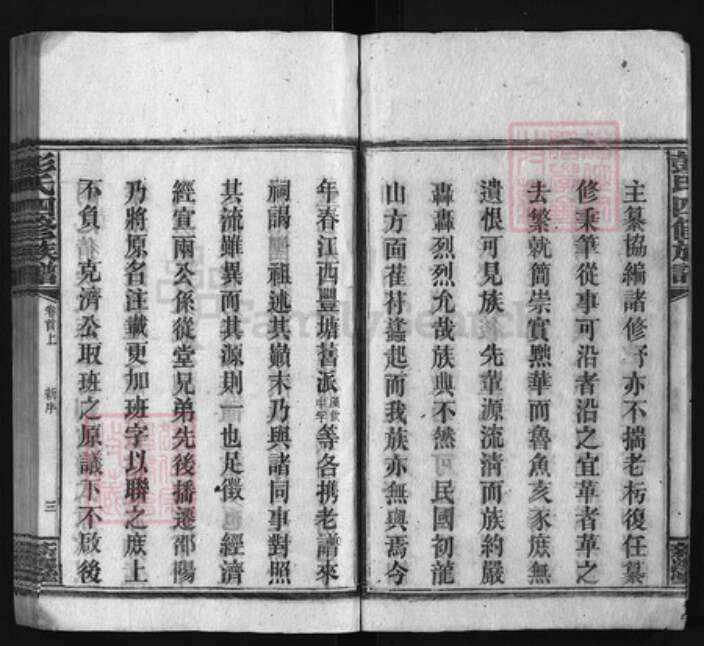 主纂協編諸修予亦不揣老朽復任纂
修秉筆從事可沿者沿之宜革者革之
去繁就簡崇實黜華而魯魚亥豕庶無
遺恨可見族先輩源流清而族約嚴
轟轟烈烈允哉族典不然民國初龍
山方面萑苻蠭起而我族亦無與焉今
年春江西豐塘舊派等各携老譜來
祠謁祖述其巔末乃與諸同事對照
其流雖異而其源則一也足徵經濟
經宣兩公係從堂兄弟先後播遷邵陽
乃將原名注載更加班字以聯之庶上
不負克濟公取班之原議下不啟後
彭氏四修族譜
卷首上
新序
三
FamilySearch